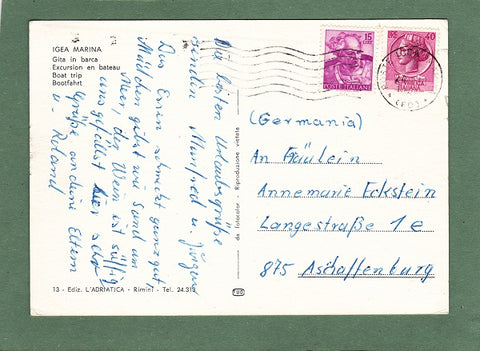 IGEA MARINA
Gita in barca
Excursion en bateau
Boat trip
Bootfahrt
Die besten Urlaubsgrüße
senden Manfred u. Jürgen
Das Essen schmeckt ganz gut,
Mädchen gibt es wie Sand am
Meer, der Wein ist süffig
uns gefällts hier sehr
Grüße an deine Eltern
u. Roland
13 - Ediz. L'ADRIATICA - Rimini - Tel. 24.313
da fotocolor - Riproduzione vietata
15
POSTE ITALIANE
40
(Germania)
An Fräulein
Annemarie Eckstein
Langestraße 1e
875 Aschaffenburg